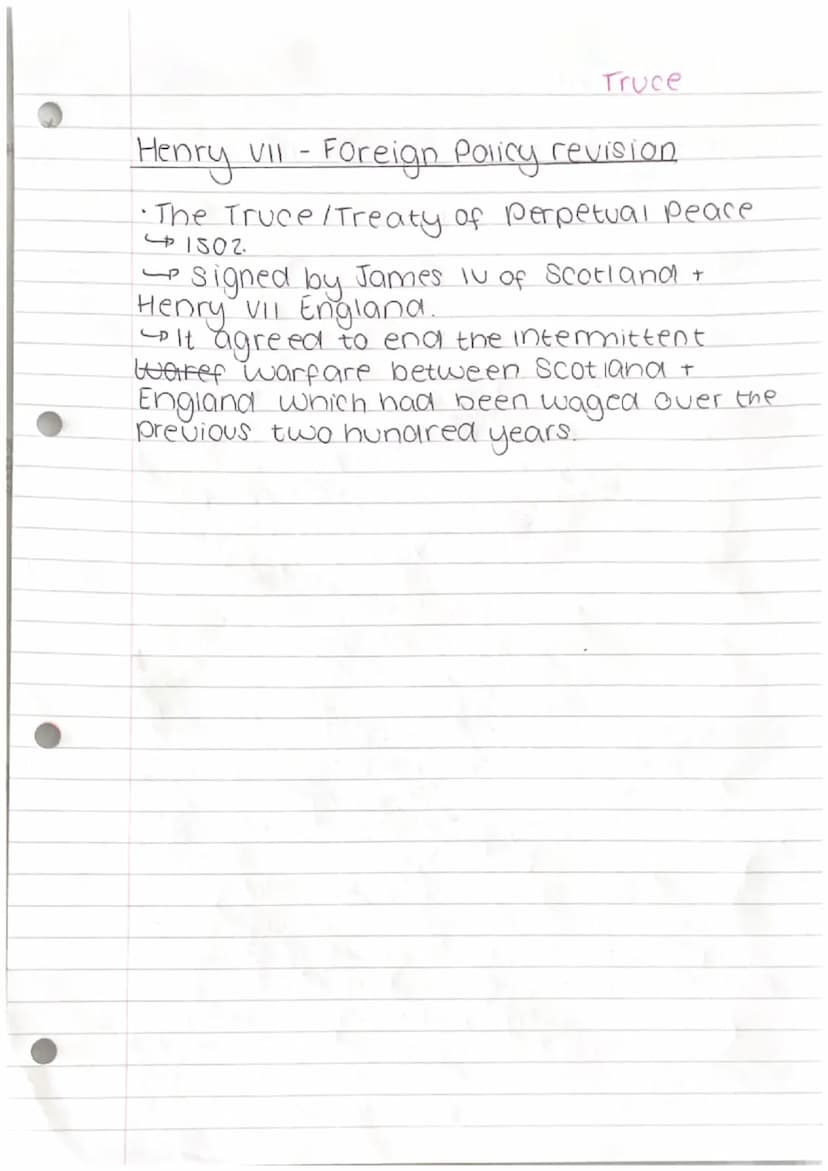 Truce
Henry VII - Foreign Policy revision
· The Truce/Treaty of Perpetual Peace
↳ 1502.
↳ Signed by James IV of Scotland +
Henry VII England.
↳ It agreed to end the intermittent
waref warfare between Scotland +
England which had been waged over the
previous two hundred years.